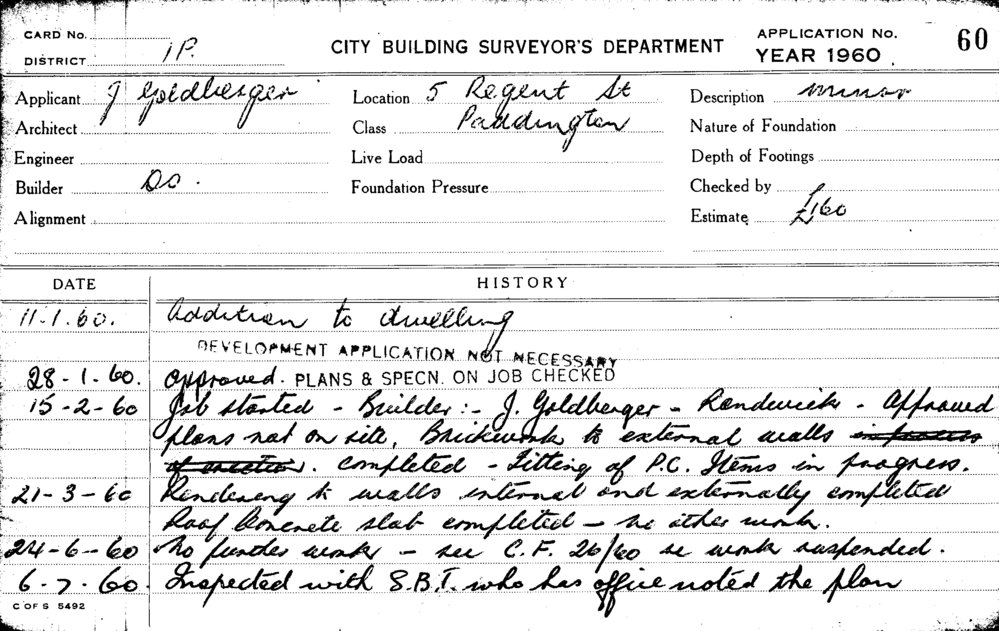 CARD No.
CITY BUILDING SURVEYOR'S DEPARTMENT
APPLICATION No. 60
DISTRICT 1P.
YEAR 1960
Applicant J Goldberger
Location 5 Regent St
Description minor
Architect
Class Paddington
Nature of Foundation
Engineer
Live Load
Depth of Footings
Builder Do.
Foundation Pressure
Checked by
Alignment
Estimate £160
DATE HISTORY
11.1.60. Addition to dwelling
DEVELOPMENT APPLICATION NOT NECESSARY
28-1.60. Approved. PLANS & SPECN. ON JOB CHECKED
15-2-60 Job started - Builder:- J. Goldberger - Randwick - Approved
plans not on site. Brickwork to external walls in process
of erection. completed - Fitting of P.C. Items in progress.
21-3-60 Rendering to walls internal and externally completed
Roof Concrete slab completed - no other work.
24-6-60 No further work - see C.F. 26/60 re work suspended.
6-7.60. Inspected with S.B.I. who has office noted the plan
C OF S 5492